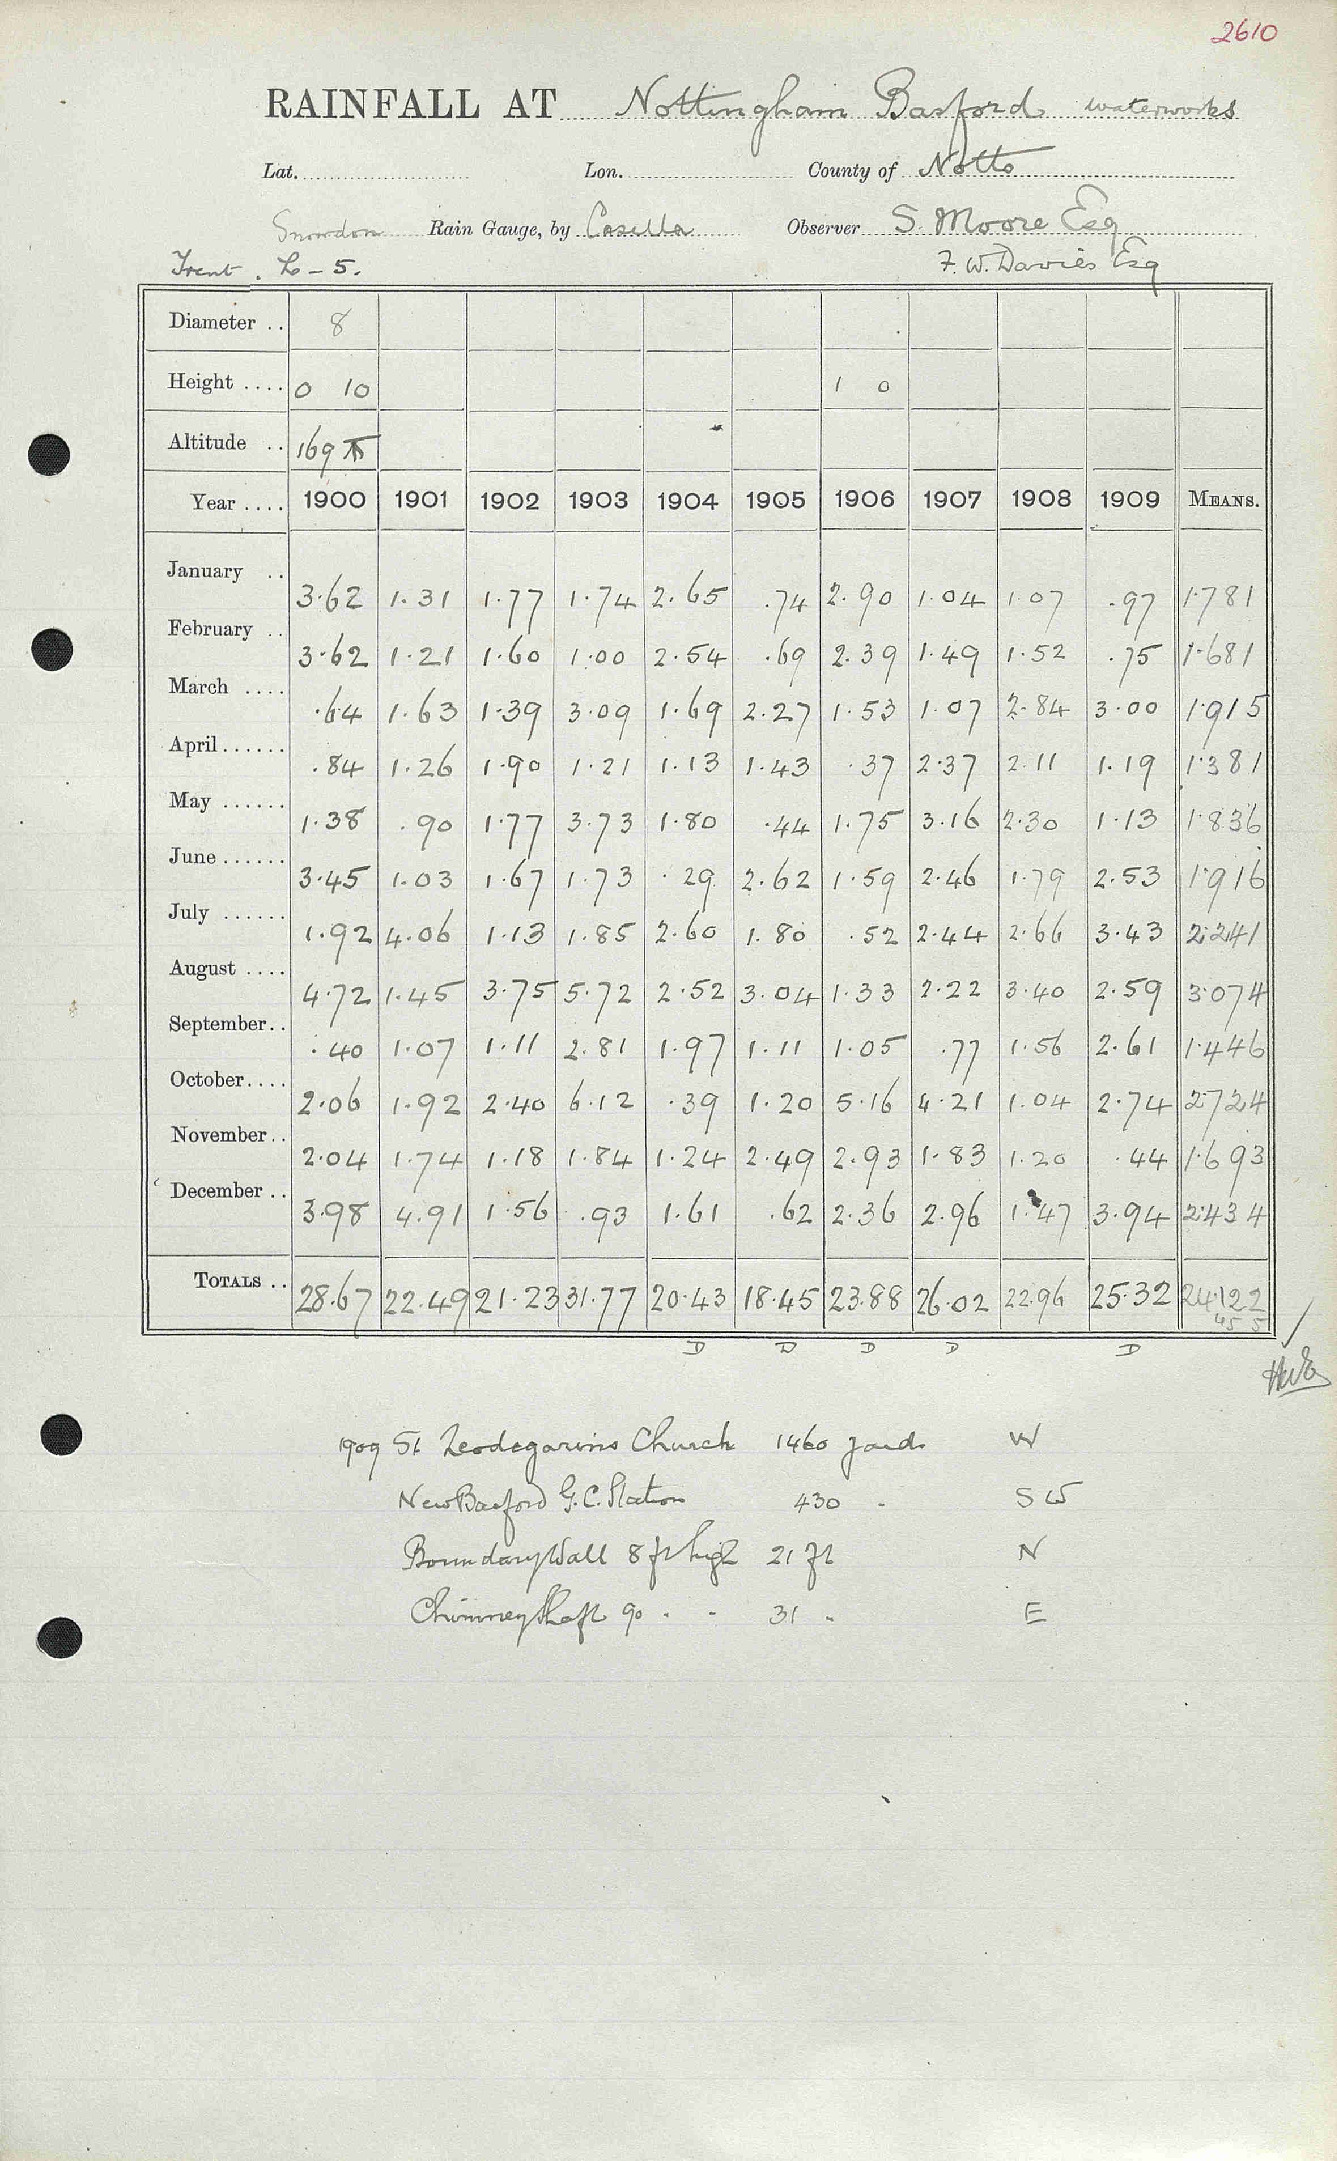 2610
RAINFALL AT Nottingham Basford waterworks
Lat. Lon. County of Notts
Snowdon Rain Gauge, by Casella Observer S. Moore Esq
Trent. L-5. F. W. Davies Esq
Diameter .. 8
Height .... 0 10 1 0
Altitude .. 169
Year .... 1900 1901 1902 1903 1904 1905 1906 1907 1908 1909 MEANS.
January .. 3.62 1.31 1.77 1.74 2.65 .74 2.90 1.04 1.07 .97 1.781
February .. 3.62 1.21 1.60 1.00 2.54 .69 2.39 1.49 1.52 .75 1.681
March .... .64 1.63 1.39 3.09 1.69 2.27 1.53 1.07 2.84 3.00 1.915
April...... .84 1.26 1.90 1.21 1.13 1.43 .37 2.37 2.11 1.19 1.381
May ...... 1.38 .90 1.77 3.73 1.80 .44 1.75 3.16 2.30 1.13 1.836
June...... 3.45 1.03 1.67 1.73 .29 2.62 1.59 2.46 1.79 2.53 1.916
July ...... 1.92 4.06 1.13 1.85 2.60 1.80 .52 2.44 2.66 3.43 2.241
August .... 4.72 1.45 3.75 5.72 2.52 3.04 1.33 2.22 3.40 2.59 3.074
September.. .40 1.07 1.11 2.81 1.97 1.11 1.05 .77 1.56 2.61 1.446
October.... 2.06 1.92 2.40 6.12 .39 1.20 5.16 4.21 1.04 2.74 2.724
November.. 2.04 1.74 1.18 1.84 1.24 2.49 2.93 1.83 1.20 .44 1.693
December .. 3.98 4.91 1.56 .93 1.61 .62 2.36 2.96 1.47 3.94 2.434
TOTALS .. 28.67 22.49 21.23 31.77 20.43 18.45 23.88 26.02 22.96 25.32 24.122
D D D D D
1909 St Leodegarius Church 1460 yards W
New Basford G.C. Station 430 " SW
Boundary Wall 8 ft high 21 ft N
Chimney Shaft 90 " " 31 " E